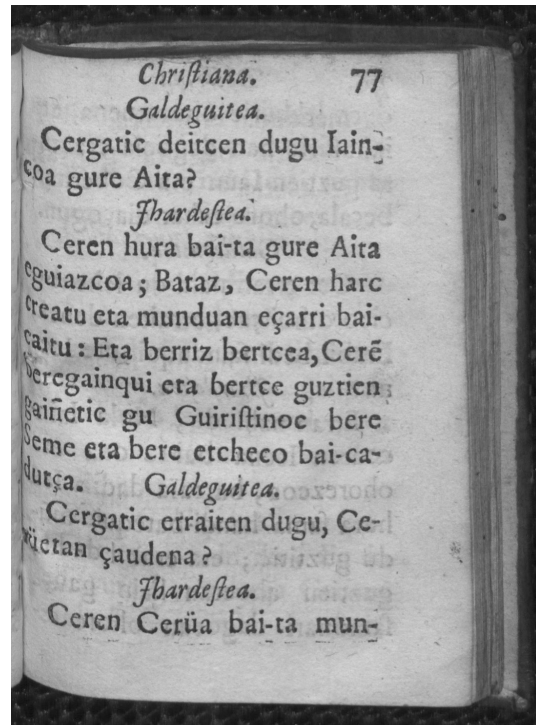 Chriſtiana. 77
Galdeguitea.
Cergatic deitcen dugu Iain-
coa gure Aita?
Jhardeſtea.
Ceren hura bai-ta gure Aita
eguiazcoa; Bataz, Ceren harc
creatu eta munduan eçarri bai-
caitu : Eta berriz bertcea, Cerẽ
beregainqui eta bertce guztien
gaiñetic gu Guiriſtinoc bere
Seme eta bere etcheco bai-ca-
dutça. Galdeguitea.
Cergatic erraiten dugu, Ce-
rüetan çaudena?
Jhardeſtea.
Ceren Cerüa bai-ta mun-